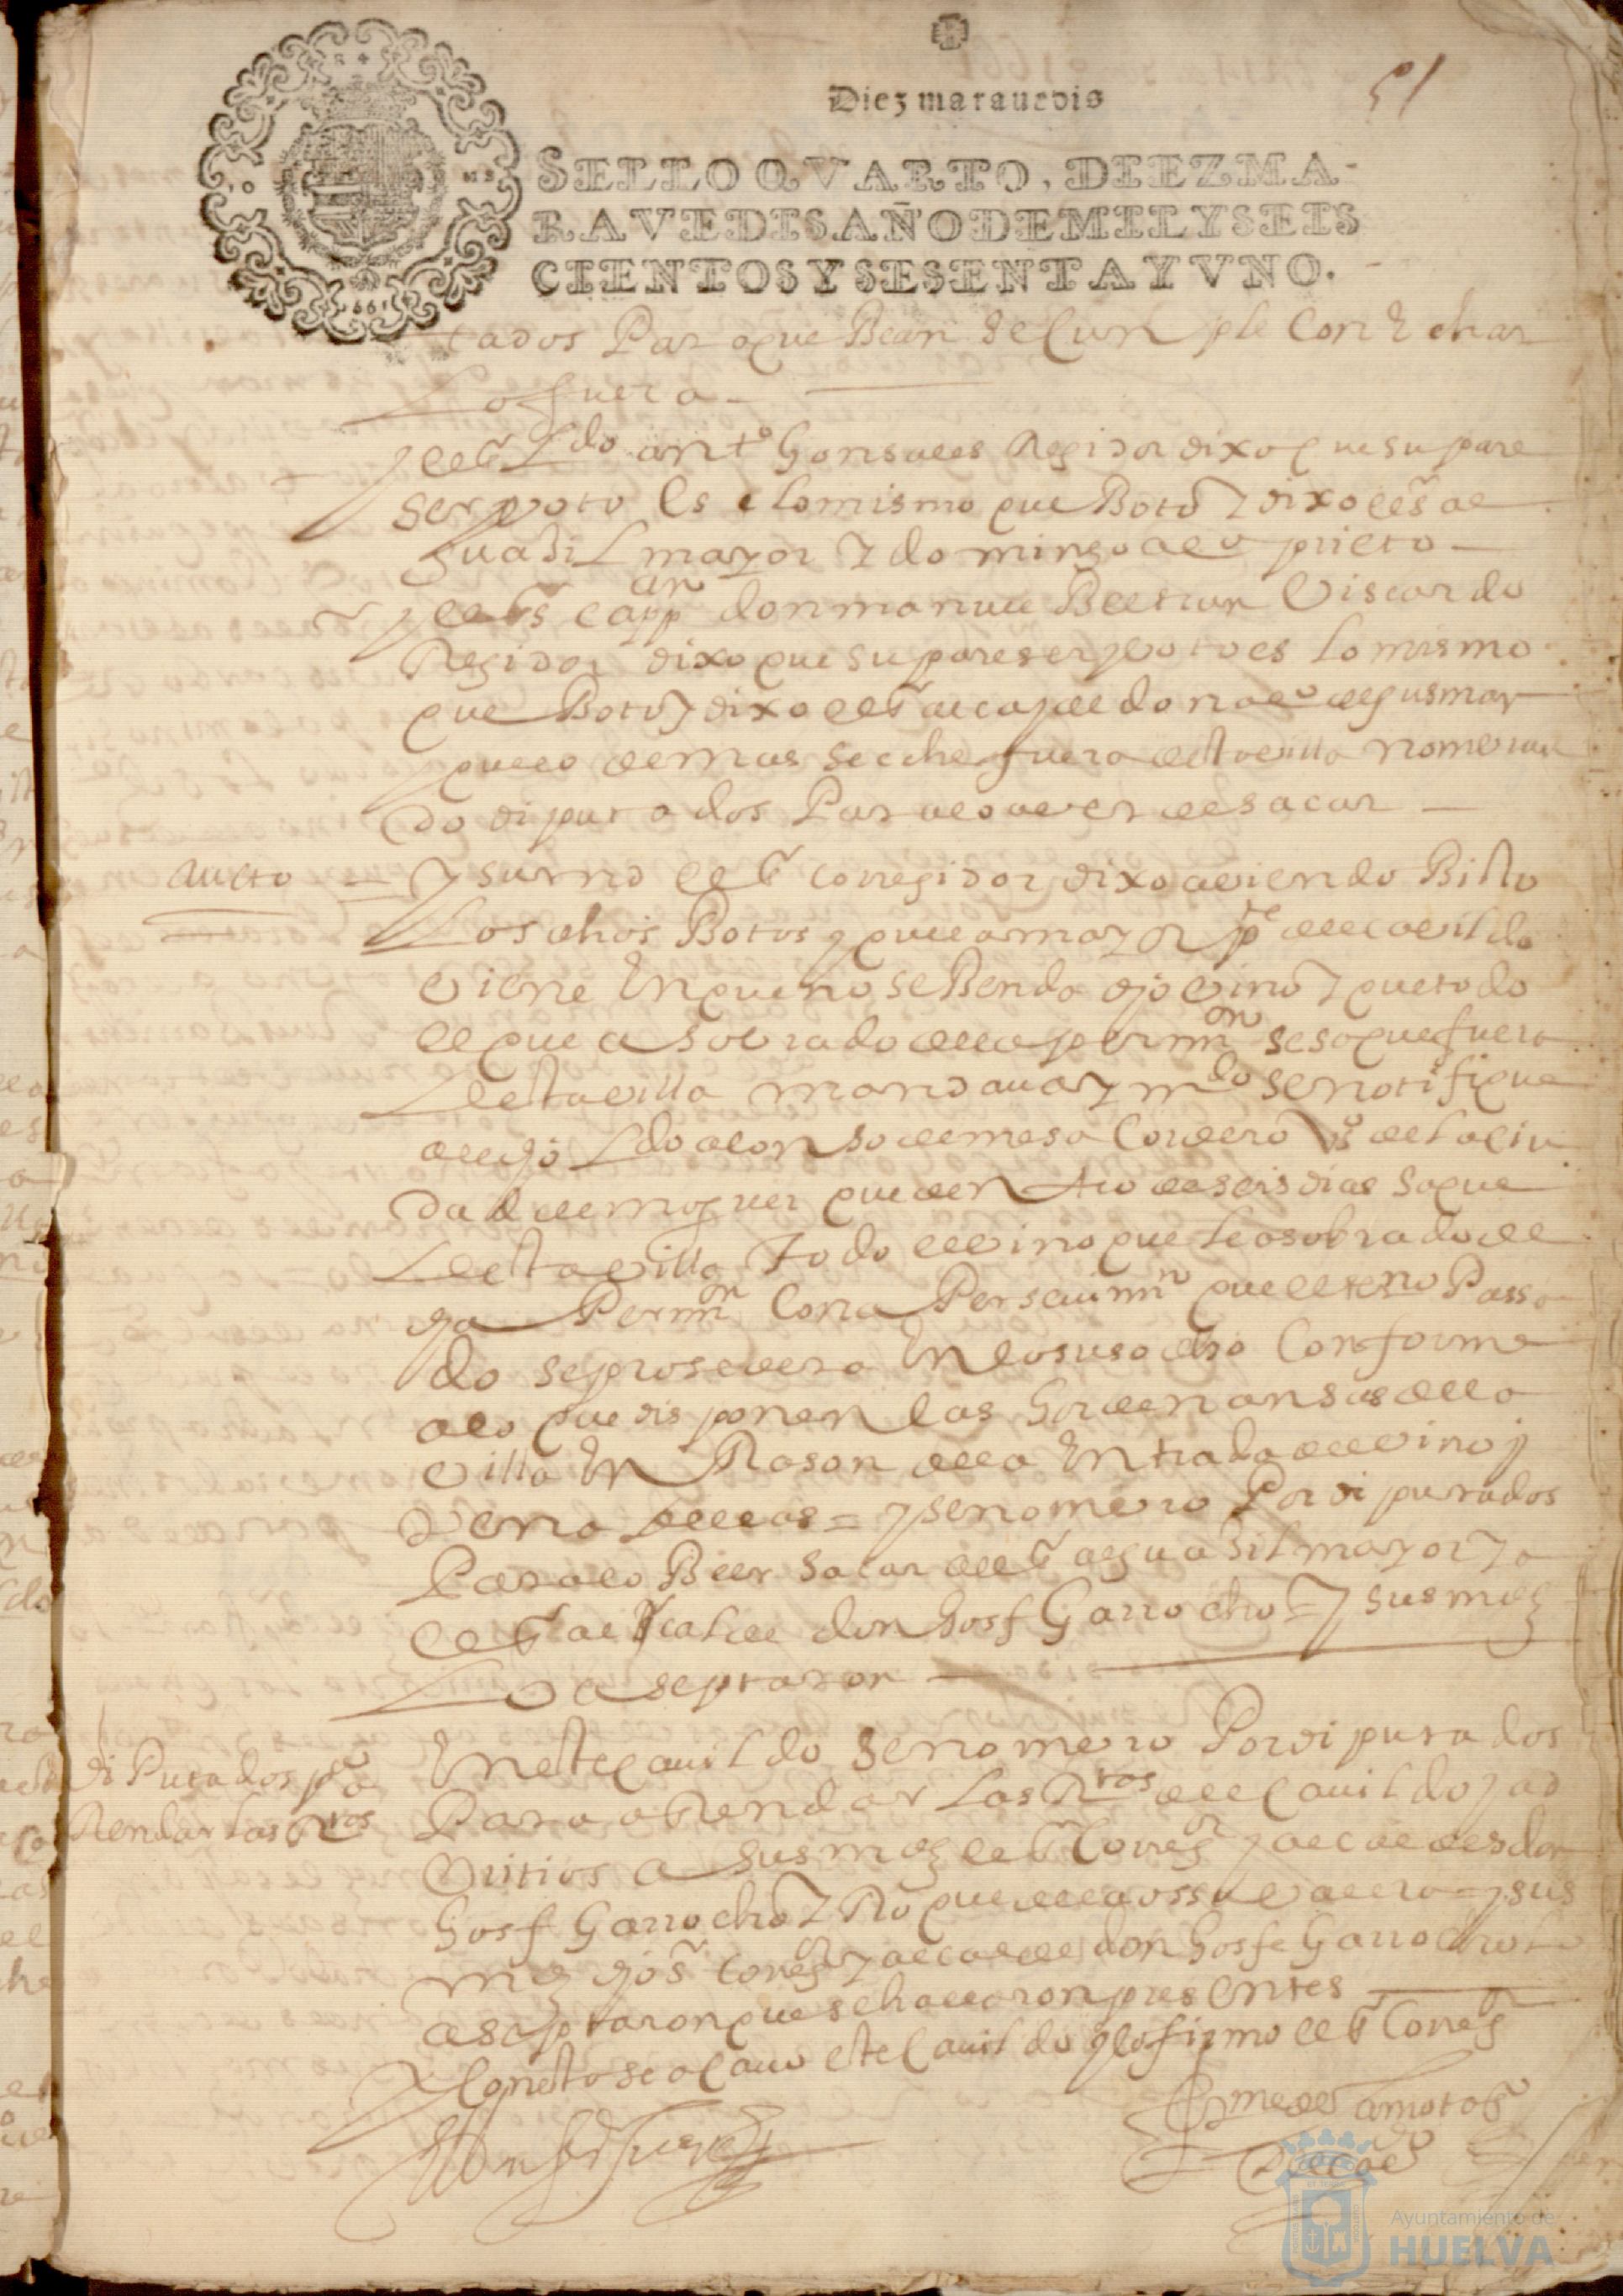 Diez marauedis
51
SELLO QVARTO, DIEZ MA-
RAVEDIS, AÑO DE MIL Y SEIS
CIENTOS Y SESENTA Y VNO.
tados Para que Bean se Cunple Con Echar
Lo fuera
y el Sr Ldo antº Gonsales Regidor dixo que su pare
ser y voto Es lo mismo que Boto y dixo el Sr al
guasil mayor y domingo prieto
y el Sr capan don manuel Beltran Viscardo
Regidor dixo que su pareser y voto es lo mismo
que Boto y dixo el Sr alcalde don de gusman
y que lo demas se eche fuera desta villa nombran
do diputados Para lo aver de sacar
Aucto = y su md el Sr corregidor dixo aviendo Bisto
Los dhos Botos y que la mayor pte del cavildo
viene En que no se Benda dho vino y que todo
el que a sobrado de la permon se saque fuera
desta villa mandava y mdo se notifique
al dho Ldo alonso de mesa Cordero vº de la ciu
dad de moguer que dentro de seis dias saque
desta villa todo el vino que le a sobrado de
dha Permon Con a Persevimnº que el terno Passa
do se prosedera En lo susodho Conforme
a lo que disponen las hordenansas de la
villa En Rason de la Entrada del vino y
Pena dellas = y se nombro Por diputados
Para lo Beer sacar al Sr alguasil mayor y a
el Sr alcalde don Josf Garrocho = y sus mds
Lo aseptaron
diPutados pa
Rendar las Rtas
En este Cavildo se nombro Por diputados
Para aRendar Las Rtas del Cavildo y ad
vitrios a sus mds el Sr Corregr y alcaldes don
Josf Garrocho y Roque de la ossa = y sus
mds dhos Sr Corregr y alcalde don Josfe Garrocho
aseptaron que se hallaron presentes
y Con esto se aCavo este Cavildo y lo firmo el Sr Corregr
Ayuntamiento de
HUELVA